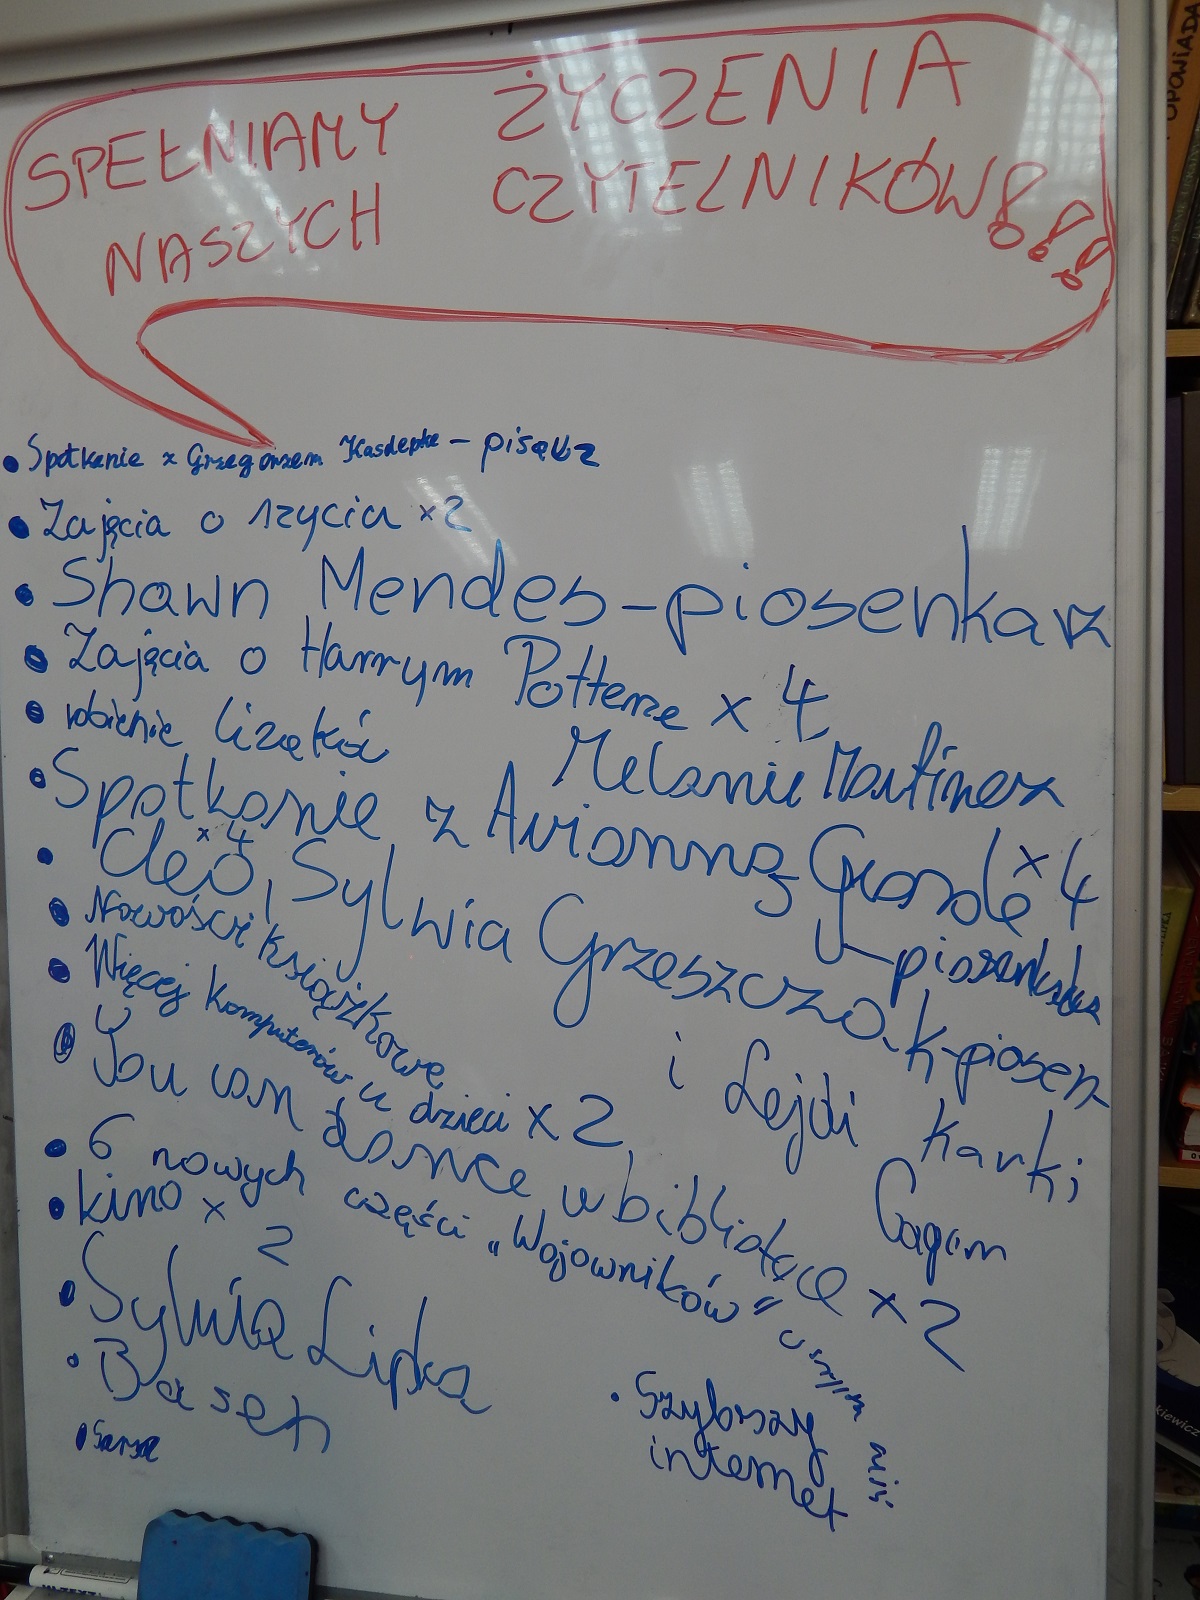 SPEŁNIAMY ŻYCZENIA
NASZYCH CZYTELNIKÓW!!!
• Spotkanie z Grzegorzem Kasdepke – pisarz
• Zajęcia o szycia x2
• Shawn Mendes – piosenkarz
• Zajęcia o Harrym Potterze x 4
• robienie lizaków
Melanie Martinez
• Spotkanie z Arianną Grande x 4
– piosenkarka
• Cleo x4, Sylwia Grzeszczak – piosen-
karki
i Lejdi Gagam
• Nowości książkowe
• Więcej komputerów u dzieci x 2
• You can dance w bibliotece x 2
• 6 nowych części „Wojowników"
• kino x 2
• Sylwia Lipka
• Basen
• Szybszy
internet
OPOWIADA
kiewicz